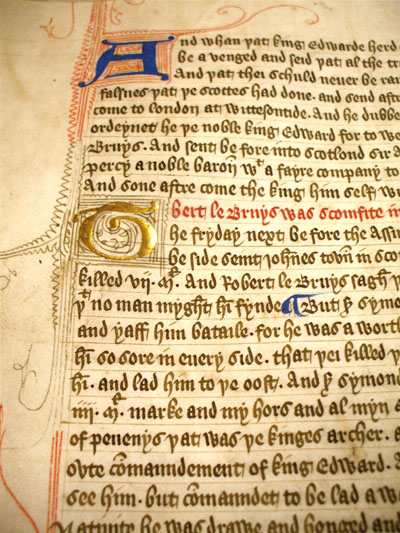 And whan þat king Edwarde herd
be a venged and seid þat al the tr
And þat thei schuld never be ra
falsnes þat þe scottes had done. and send afte
come to london at wittesontide. And he dubbe
ordeynet he þe noble king Edward for to we
Bruys. And sent be fore into scotlond sir a
percy a noble baron wt a fayre company to
And sone aftre come the king him self wi
bert le Bruys was scomfite in
The fryday next be fore the Assu
be side seint Johnes town in sco
killed vii. M. And Robert le Bruys sagh þ
þt no man myght hi fynde But symo
and yaff him bataile. for he was a worth
hi so sore in every side. that þei killed
hi. and lad him to þe oost. And symond
iiii. M. marke and my hors and al myn a
of pevenys þat was þe kinges archer. a
oute comaundement of king Edward. a
see him. but comaundet to be lad a wa
Nativite he was drawe and honged and